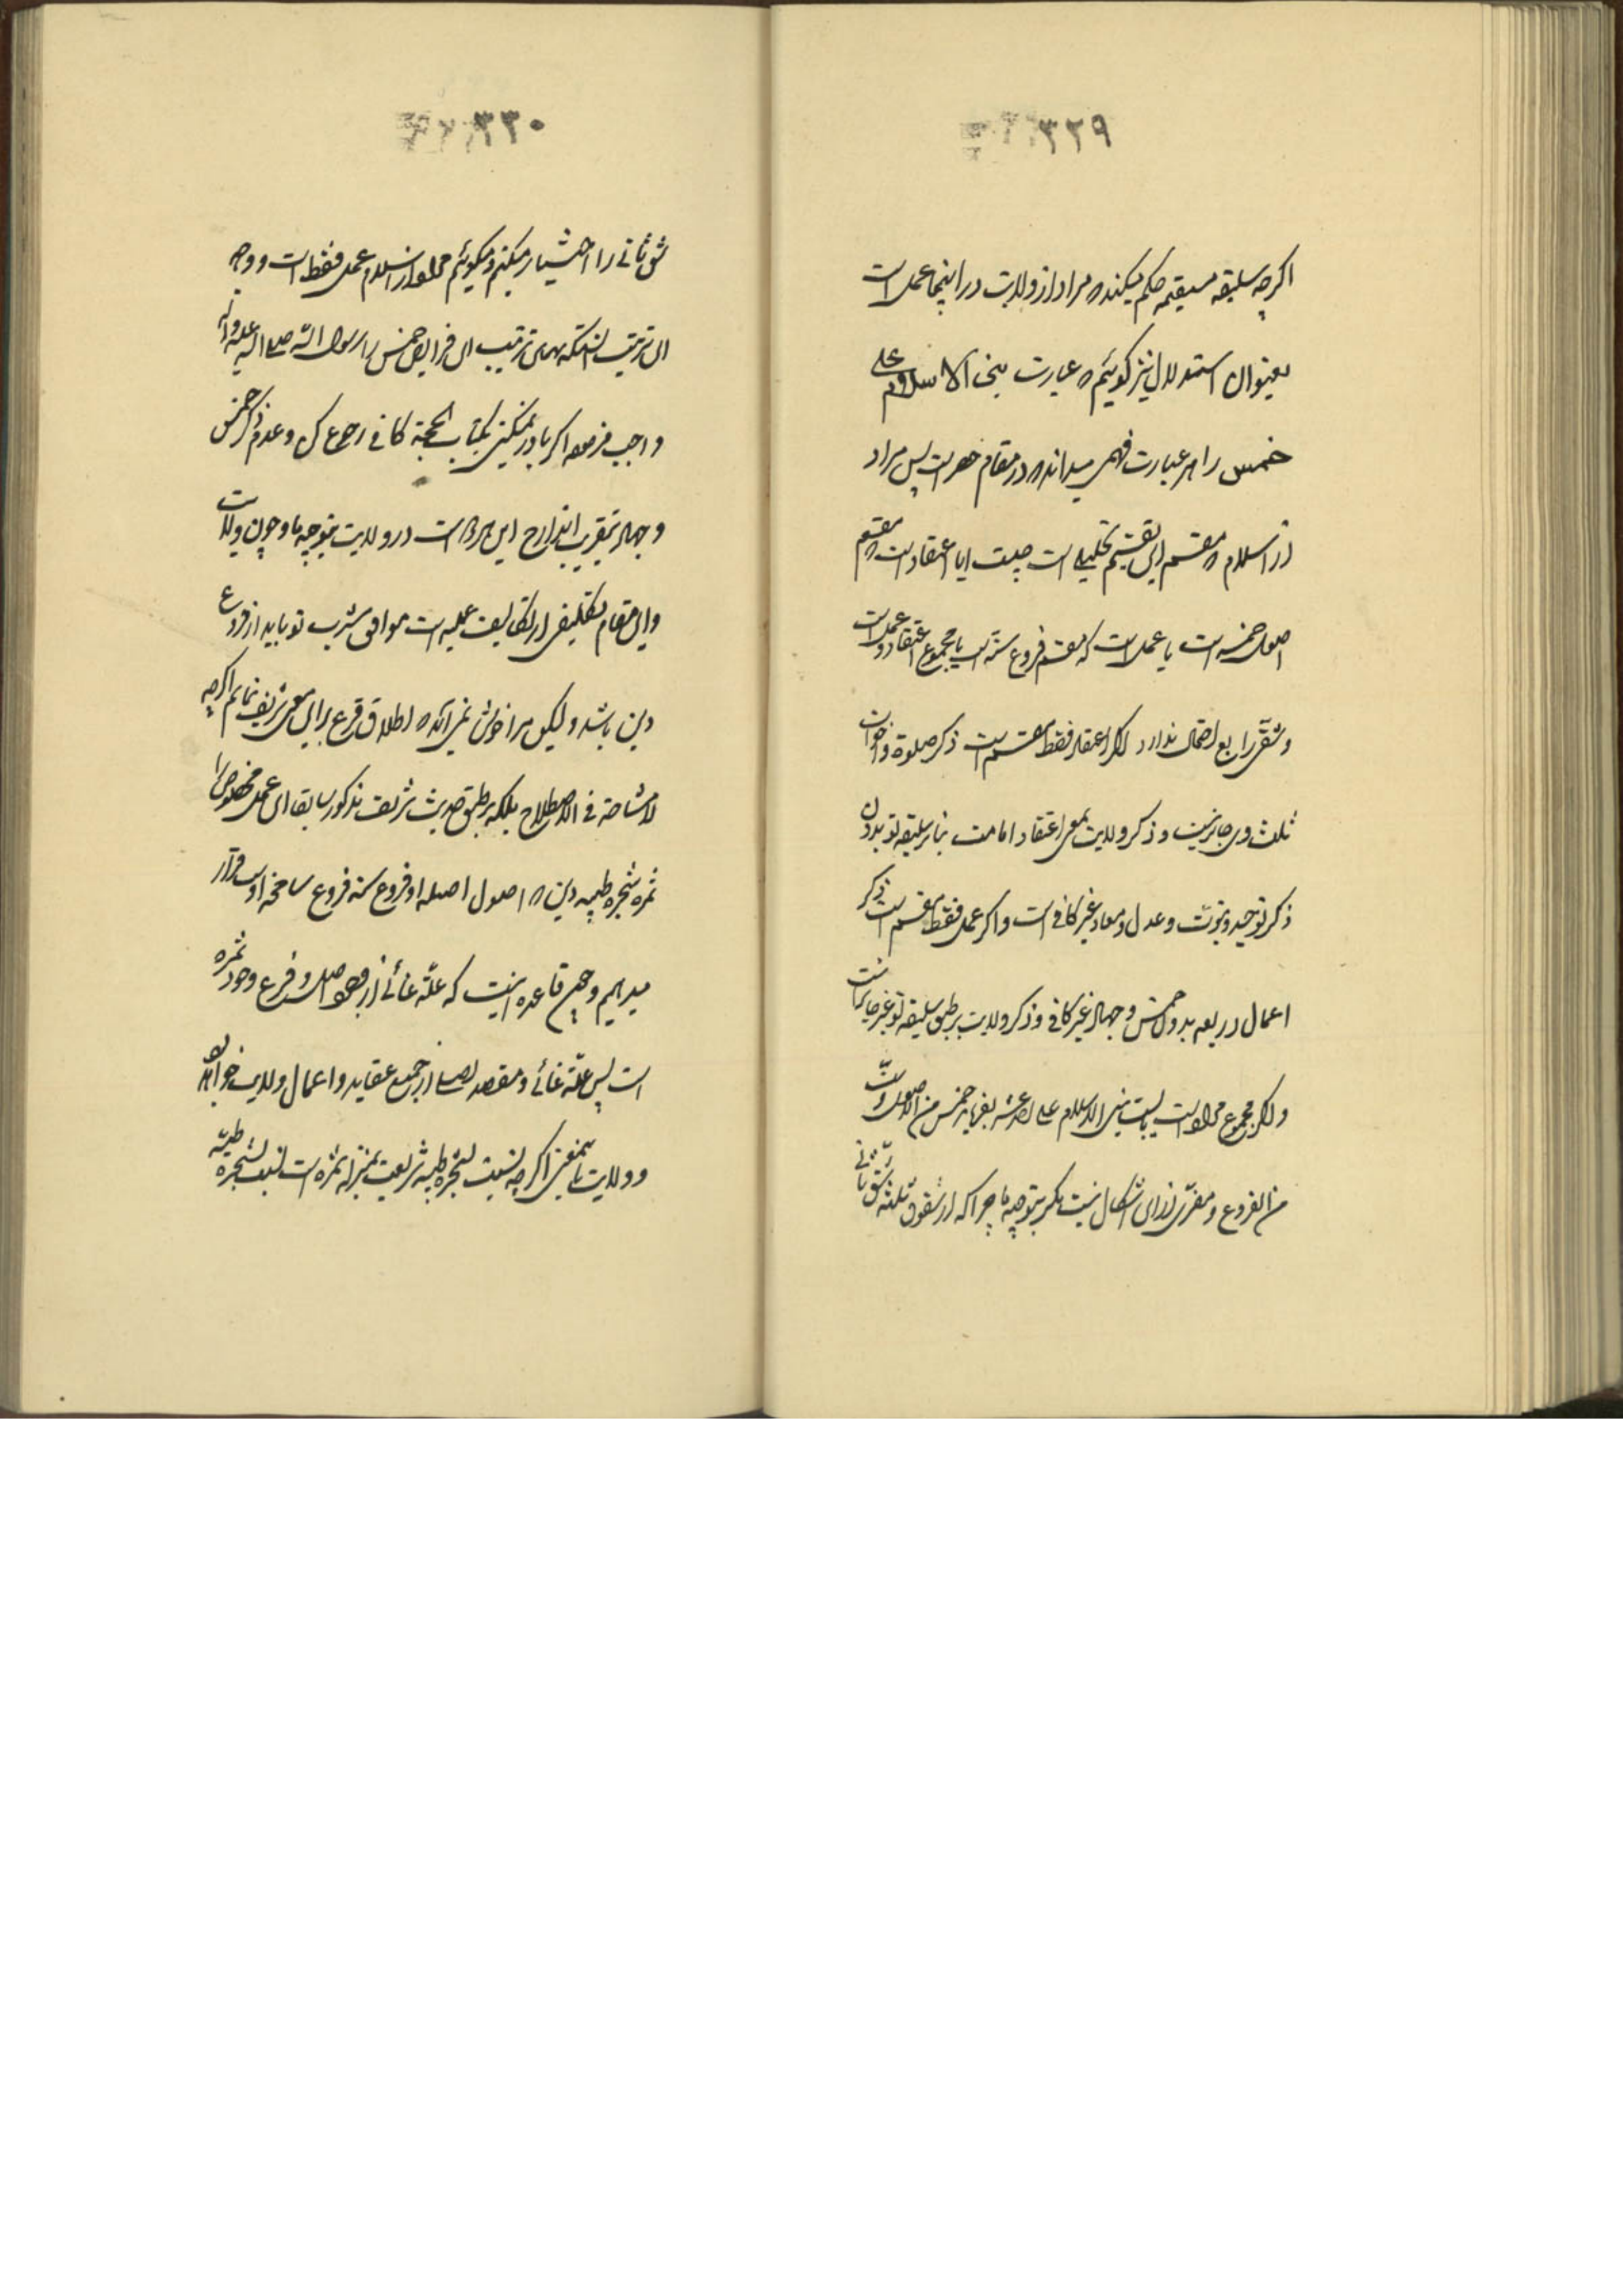 ۳۲۹
اکرچه سلیقه مستقیمه حکم میکند که مراد از ولایت در اینجا عمل است
بعنوان استدلال نیز کوئیم که عبارت بنی الاسلام علی
خمس را هر عبارت فهمی میداند که در مقام حصر است پس مراد
از اسلام که مقسم این تقسیم تحلیلی است چیست ایا اعتقاد است که مقسم
اصول خمسه است یا عمل است که مقسم فروع سته است یا مجموع اعتقاد و عمل است
و شق رابع احتمال ندارد اکر اعتقاد فقط مقسم است ذکر صلوة و اخوات
ثلث وی جایز نیست و ذکر ولایت بمعنی اعتقاد امامت بنابر سلیقه تو بدون
ذکر توحید و نبوت و عدل و معاد غیر کافی است و اکر عمل فقط مقسم است ذکر
اعمال اربعه بدون خمس و جهاد غیر کافی و ذکر ولایت بر طبق سلیقه تو غیر جایز است
و اکر مجموع مراد است بایست بنی الاسلام علی احد عشر بفرماید خمس من الاصول و ستة
من الفروع و مفری از این اشکال نیست مکر بتوجیه ما چرا که از شقوق ثلثه شق ثانی
۳۳۰
شق ثانی را اختیار میکنیم و میکوئیم مراد از اسلام عمل فقط است و وجه
این ترتیب انستکه همین ترتیب این فرایض خمس را رسول الله صلی الله علیه و اله
واجب فرموده اکر باور نمیکنی بکتاب الحجة کافی رجوع کن و عدم ذکر خمس
و جهاد بتقریب اندراج این هر دو است در ولایت بتوجیه ما و چون ولایت
در این مقام تکلیفی از تکالیف عملیه است موافق مشرب تو باید از فروع
دین باشد و لیکن مرا خوش نمی آید که اطلاق فرع بر این معنی شریف نمایم اکرچه
لامشاحة فی الاصطلاح بلکه بر طبق حدیث شریف مذکور سابقا این عمل مخصوص را
ثمره شجره طیبه دین که اصول اصیله او فروع سته فروع شامخه اوست قرار
میدهیم و هیچ قاعده نیست که علة غائی از وجود اصل و فرع وجود ثمره
است پس علة غائی و مقصد اصلی از جمیع عقاید و اعمال ولایت خواهد بود
و ولایت باینمعنی اکرچه نسبت بشجره طیبه شریعت بمنزله ثمره است نسبت بشجره طیبه